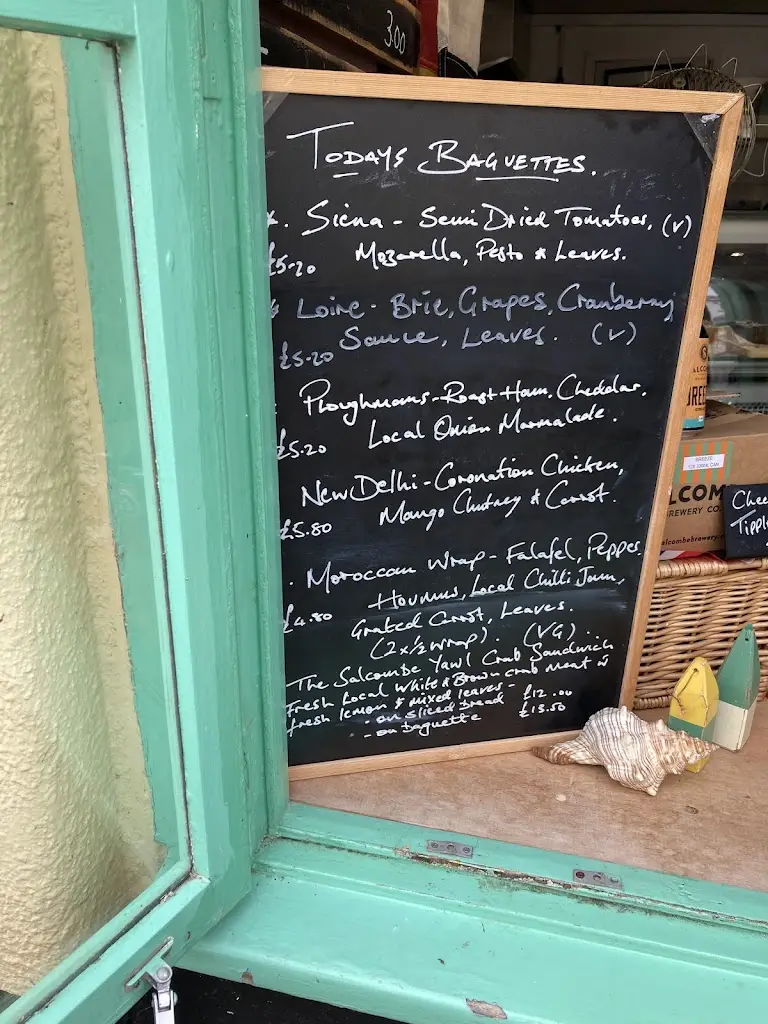 300
TODAYS BAGUETTES.
Siena - Semi Dried Tomatoes, (V)
£5-20 Mozarella, Pesto & Leaves.
Loire - Brie, Grapes, Cranberry
Sauce, Leaves. (V)
£5.20
Ploughmans - Roast Ham, Cheddar,
£5.20 Local Onion Marmalade.
New Delhi - Coronation Chicken,
£5.80 Mango Chutney & Carrot.
Moroccan Wrap - Falafel, Peppes
£4.80 Houmus, Local Chilli Jam,
Grated Carrot, Leaves.
(2x½ wrap). (VG)
The Salcombe Yawl Crab Sandwich
Fresh Local White & Brown crab meat w
fresh lemon & mixed leaves -
- on sliced bread £12.00
- on baguette £13.50
ALCO
BREE
BREEZE
LCOM
REWERY CO
alcombebrewery.
Chee
Tipply